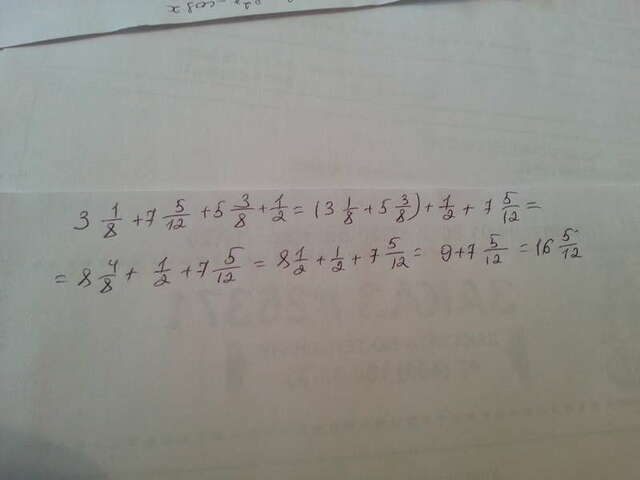 3 1/8 + 7 5/12 + 5 3/8 + 1/2 = (3 1/8 + 5 3/8) + 1/2 + 7 5/12 =
= 8 4/8 + 1/2 + 7 5/12 = 8 1/2 + 1/2 + 7 5/12 = 9 + 7 5/12 = 16 5/12